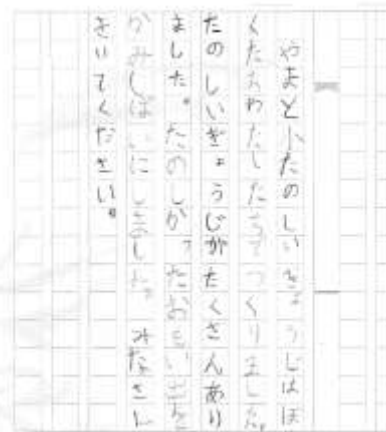 やまと小たのしいぎょうじはぼ
くたちわたしたちでつくりました。
たのしいぎょうじがたくさんあり
ました。たのしかったおもい出を
かみしばいにしました。みなさん
きいてください。